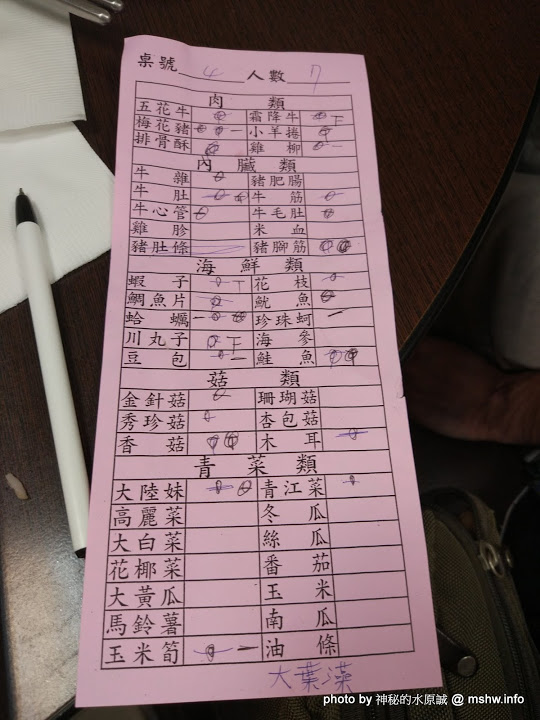 桌號 4 人數 7
肉類
五花牛 霜降牛 下
梅花豬 一 小羊捲
排骨酥 雞柳 一
內臟類
牛雜 豬肥腸
牛肚 牛筋
牛心管 牛毛肚
雞胗 米血
豬肚條 豬腳筋
海鮮類
蝦子 下 花枝
鯛魚片 魷魚
蛤蠣 一 珍珠蚵 一
川丸子 下 海參
豆包 一 鮭魚
菇類
金針菇 珊瑚菇
秀珍菇 杏包菇
香菇 木耳
青菜類
大陸妹 青江菜
高麗菜 冬瓜
大白菜 絲瓜
花椰菜 番茄
大黃瓜 玉米
馬鈴薯 南瓜
玉米筍 一 油條
大葉
photo by 神秘的水原誠 @ mshw.info